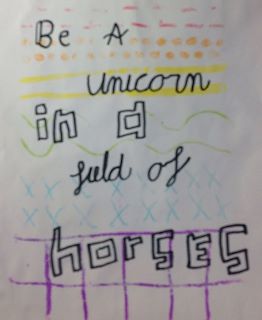 Be A
unicorn
in a
field of
horses